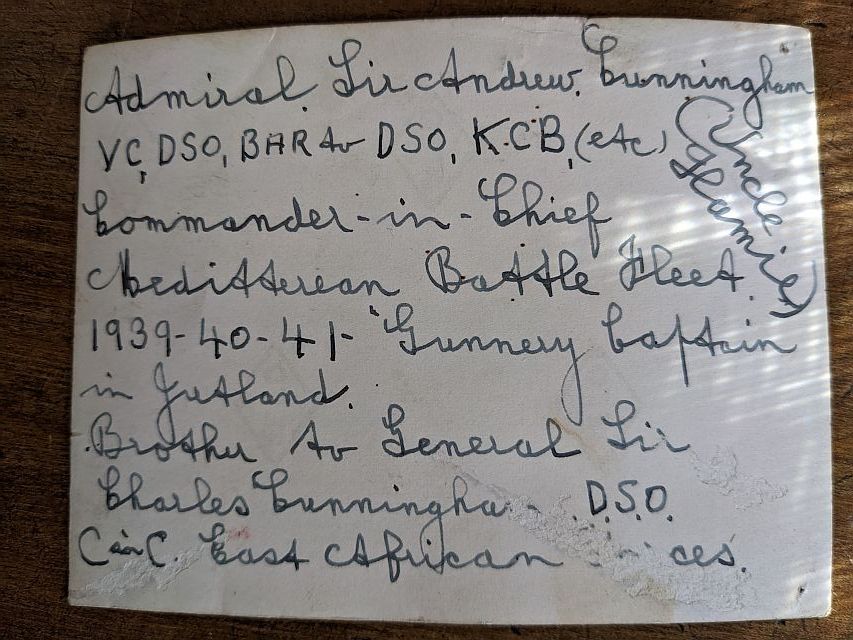 Admiral. Sir Andrew. Cunningham
VC, DSO, BAR to DSO, K.C.B, (etc)
(Uncle
Hamie)
Commander-in-Chief
Meditterean Battle Fleet.
1939-40-41- Gunnery Captain
in Jutland.
Brother to General Sir
Charles Cunningha D.S.O.
C in C. East African